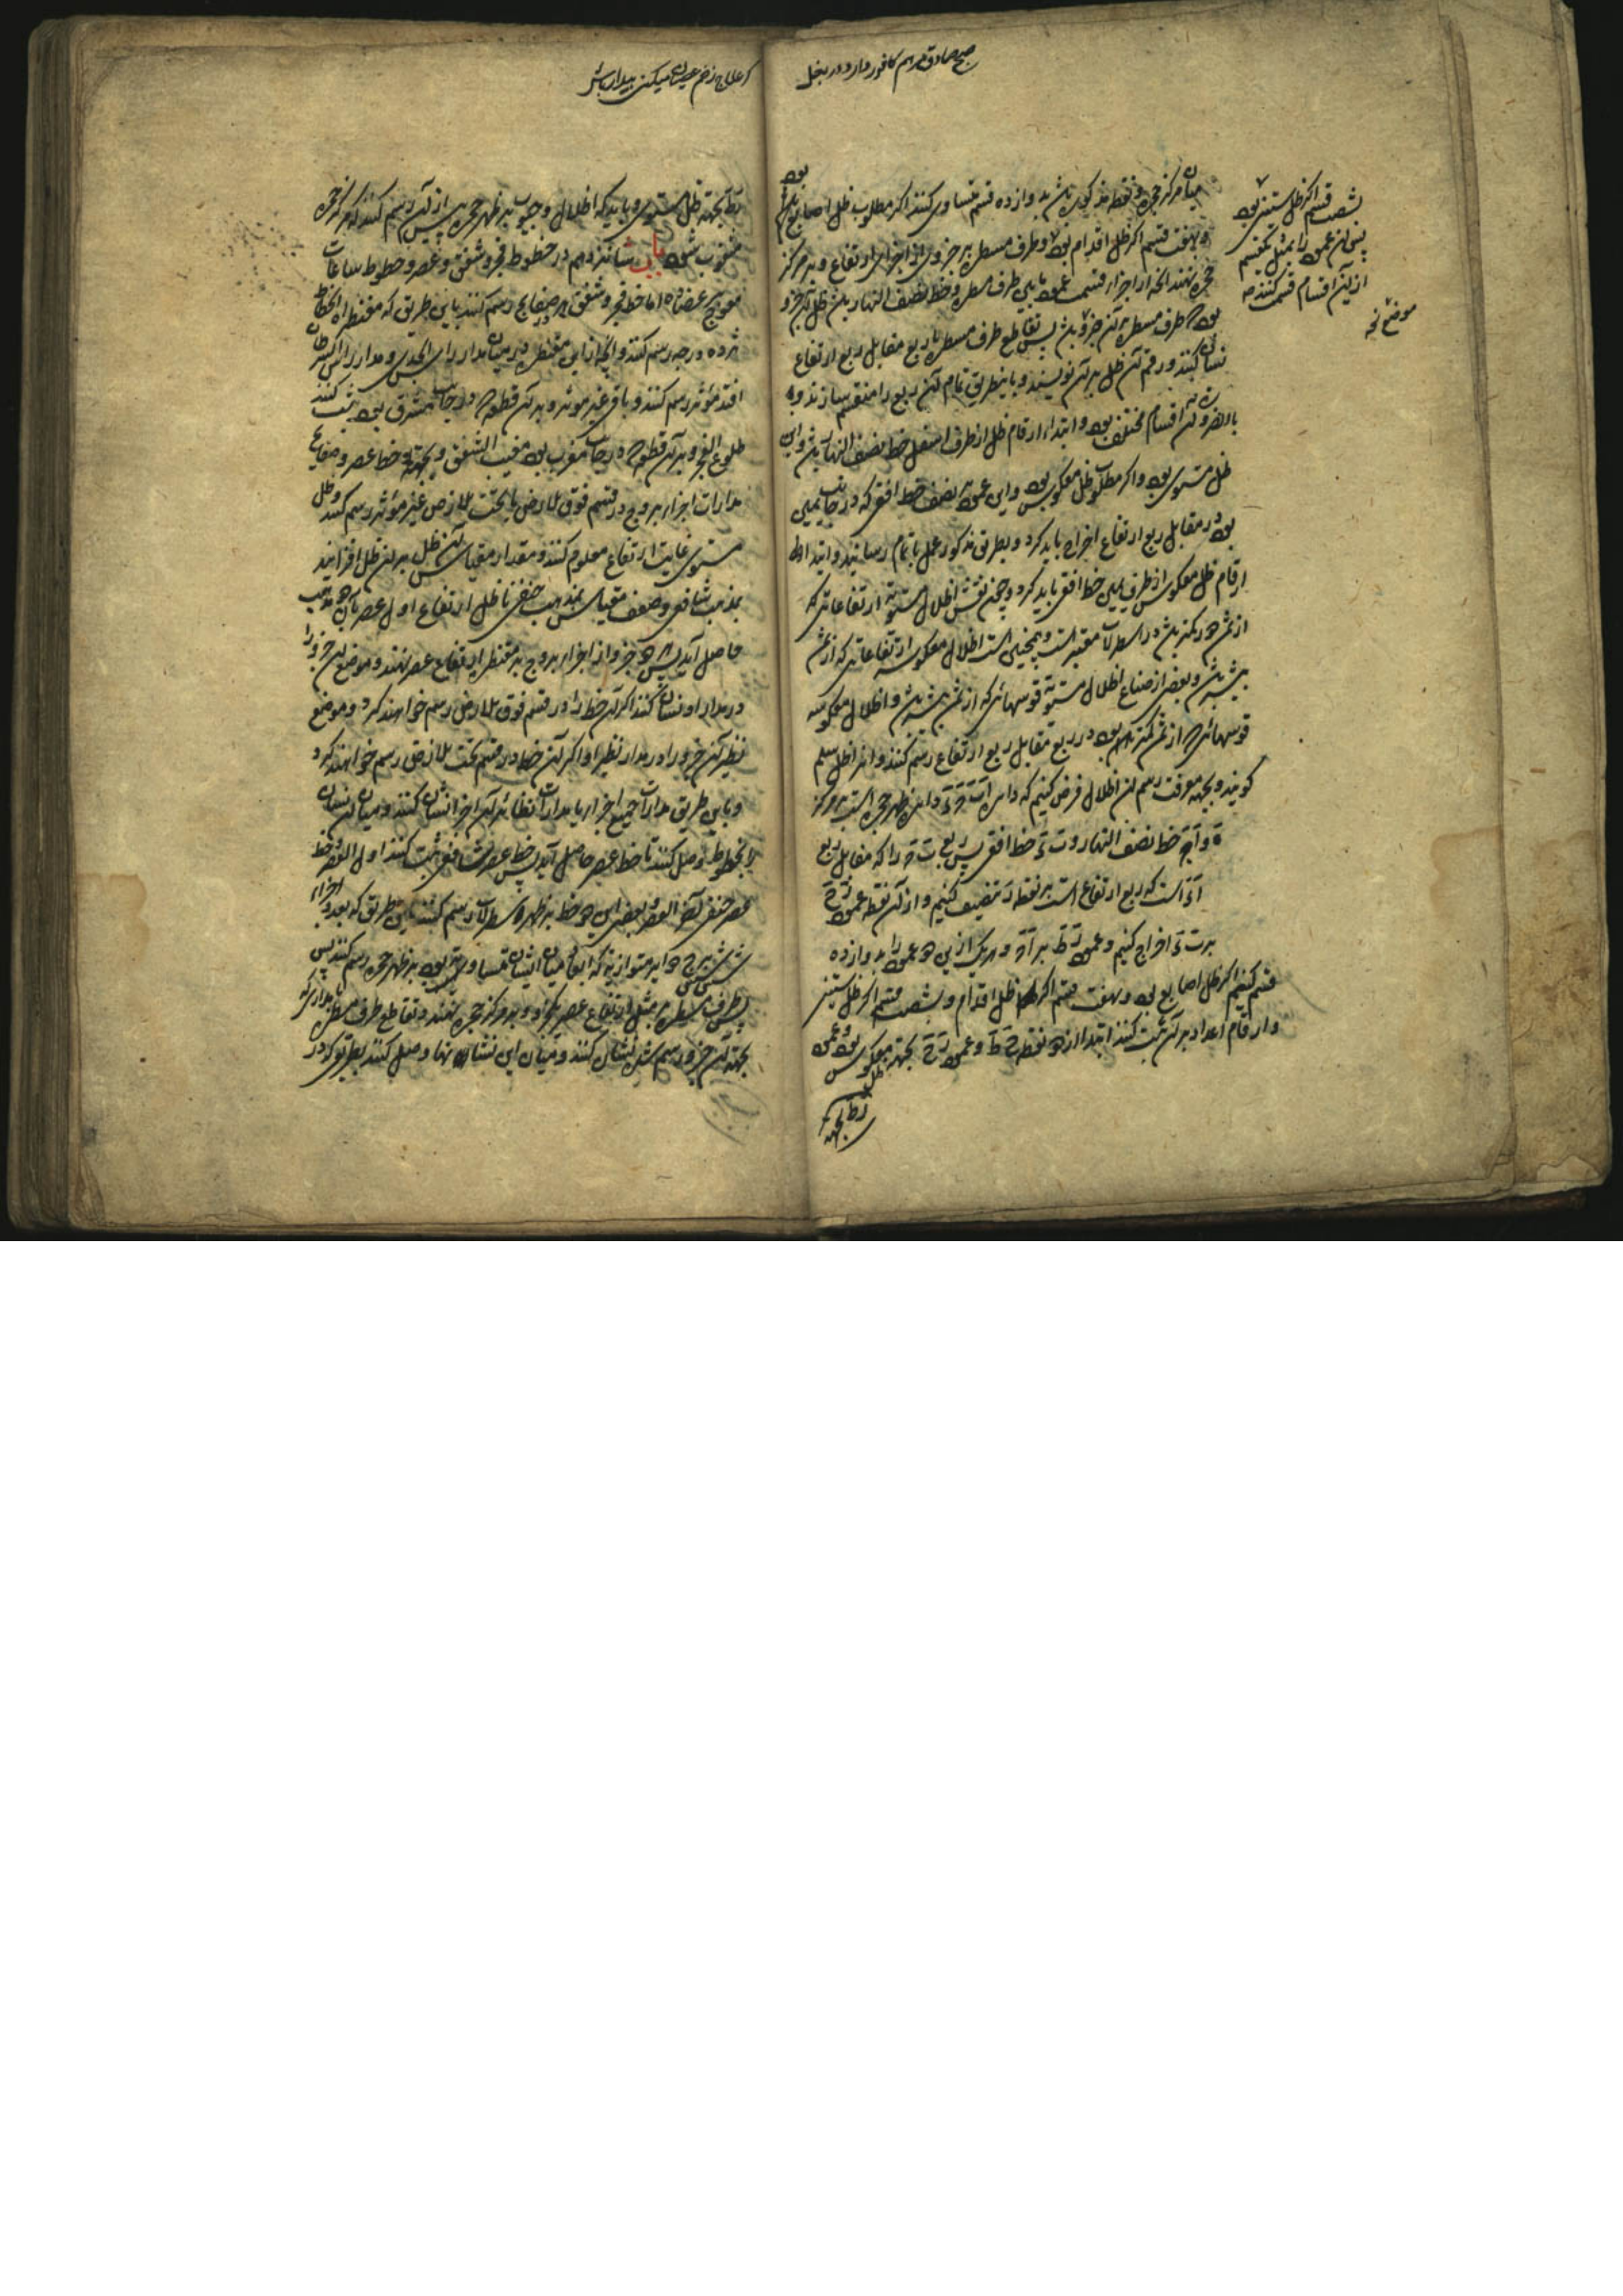 صبح صادق مرهم کافور دارد در بغل
میان مرکز حجره و نقطه مذکور باشد بدوازده قسم متساوی کنند اگر مطلوب ظل اصابع بود
و بهفت قسم اگر ظل اقدام بود و طرف مسطره بر جزوی از اجزای ارتفاع و بر مرکز
حجره نهند آنچه از اجزاء قسمت عمود مابین طرف مسطره و خط نصف النهار باشد ظل آن جزو
بود که طرف مسطره بر آن جزو باشد پس تقاطع طرف مسطره با ربع مقابل ربع ارتفاع
نشان کنند و رقم آن ظل بر آن نویسند و باینطریق تمام آن ربع را منقسم سازند و به
بالضروره آن اقسام مختلف بود و ابتداء ارقام ظل از طرف اسفل خط نصف النهار باشد و این
ظل مستوی بود و اگر مطلوب ظل معکوس بود و این عمود بر نصف خط افق که در جانب یمین
بود در مقابل ربع ارتفاع اخراج باید کرد و بطریق مذکور عمل باتمام رسانید و ابتداء
ارقام ظل معکوس از طرف یمین خط افق باید کرد و چون نقش اظلال مستویه ارتفاعاتی که
از ثمن دور کمتر باشد در اسطرلاب معتبر است و همچنین است اظلال معکوسه ارتفاعاتی که از ثمن
بیشتر باشد و بعضی از صناع اظلال مستویه قوسهائی که از ثمن بیشتر باشد و اظلال معکوسه
قوسهائی که از ثمن کمتر بود در ربع مقابل ربع ارتفاع رسم کنند و انرا ظل سلم
گویند و بجهة معرفت رسم این اظلال فرض کنیم که دایره اب ج د دایره ظهر حجره است بر مرکز
ه و اج خط نصف النهار و ب د خط افق پس ربع ب ج را که مقابل ربع
اد است که ربع ارتفاع است بر نقطه ز تنصیف کنیم و از آن نقطه عمود زح
بر ب د اخراج کنیم و عمود زط بر اج و هر یک از این دو عمود را بدوازده
قسم کنیم اگر ظل اصابع بود و بهفت قسم اگر ظل اقدام و بشصت قسم اگر ظل ستینی
و ارقام اعداد بر آن ثبت کنند ابتدا از دو نقطه ح ط و عمود زح بجهة ظل معکوس بود و عمود
زط بجهة
بشصت قسم اگر ظل ستینی بود
پس این عمود را بمثل یکقسم
از این اقسام قسمت کنند
که علاج زخم عصیان میکنی بیدار باش
زط بجهة ظل مستوی و باید که اظلال و جیوب بر ظهر حجره پیش از آن رسم کنند که مرکز حجره
مثقوب شود باب شانزدهم در خطوط فجر و شفق و عصر و خطوط ساعات
معوج بر عضاده اما خط فجر و شفق بر صفایح رسم کنند باین طریق که مقنطره انحطاط
هژده درجه رسم کنند و آنچه از این مقنطره در میان مدار راس الجدی و مدار راس السرطان
افتد مؤثر رسم کنند و باقی غیر مؤثر و بر آن قطعه که در جانب مشرق بود ثبت کنند
طلوع الفجر و بر آن قطعه که در جانب مغرب بود مغیب الشفق و بجهة خط عصر در صفایح
مدارات اجزاء بروج در قسم فوق الارض یا تحت الارض غیر مؤثر رسم کنند و ظل
مستوی غایت ارتفاع معلوم کنند و مقدار مقیاس آن ظل بر آن ظل افزایند
بمذهب شافعی و ضعف مقیاس بمذهب حنفی تا ظل ارتفاع اول عصر بآن دو مذهب
حاصل آید پس هر جزو از اجزاء بروج بر مقنطره ارتفاع عصر نهند و موضع آن جزو را
در مدار او نشان کنند اگر آن خط را در قسم فوق الارض رسم خواهند کرد و موضع
نظیر آن جزو را در مدار نظیر او اگر آن خط در قسم تحت الارض رسم خواهند کرد
و باین طریق مدارات جمیع اجزاء یا مدارات نظائر آن اجزا نشان کنند و میان آن نشان
را بخطوط وصل کنند تا خط عصر حاصل آید پس خط عصر شافعی ثبت کنند اول العصر و خط
عصر حنفی آخر العصر و بعضی این دو خط بر ظهر اسطرلاب رسم کنند باین طریق که بعدد اجزاء
شش برج دوایر متوازیه که ابعاد میان ایشان متساویه بود بر ظهر حجره رسم کنند پس
طرف مسطره بر مثل ارتفاع عصر هر جزو و بر مرکز حجره نهند و تقاطع طرف مسطره با مداری که
بجهة آن جزو رسم شده نشان کنند و میان این نشانها وصل کنند بطریقی که در